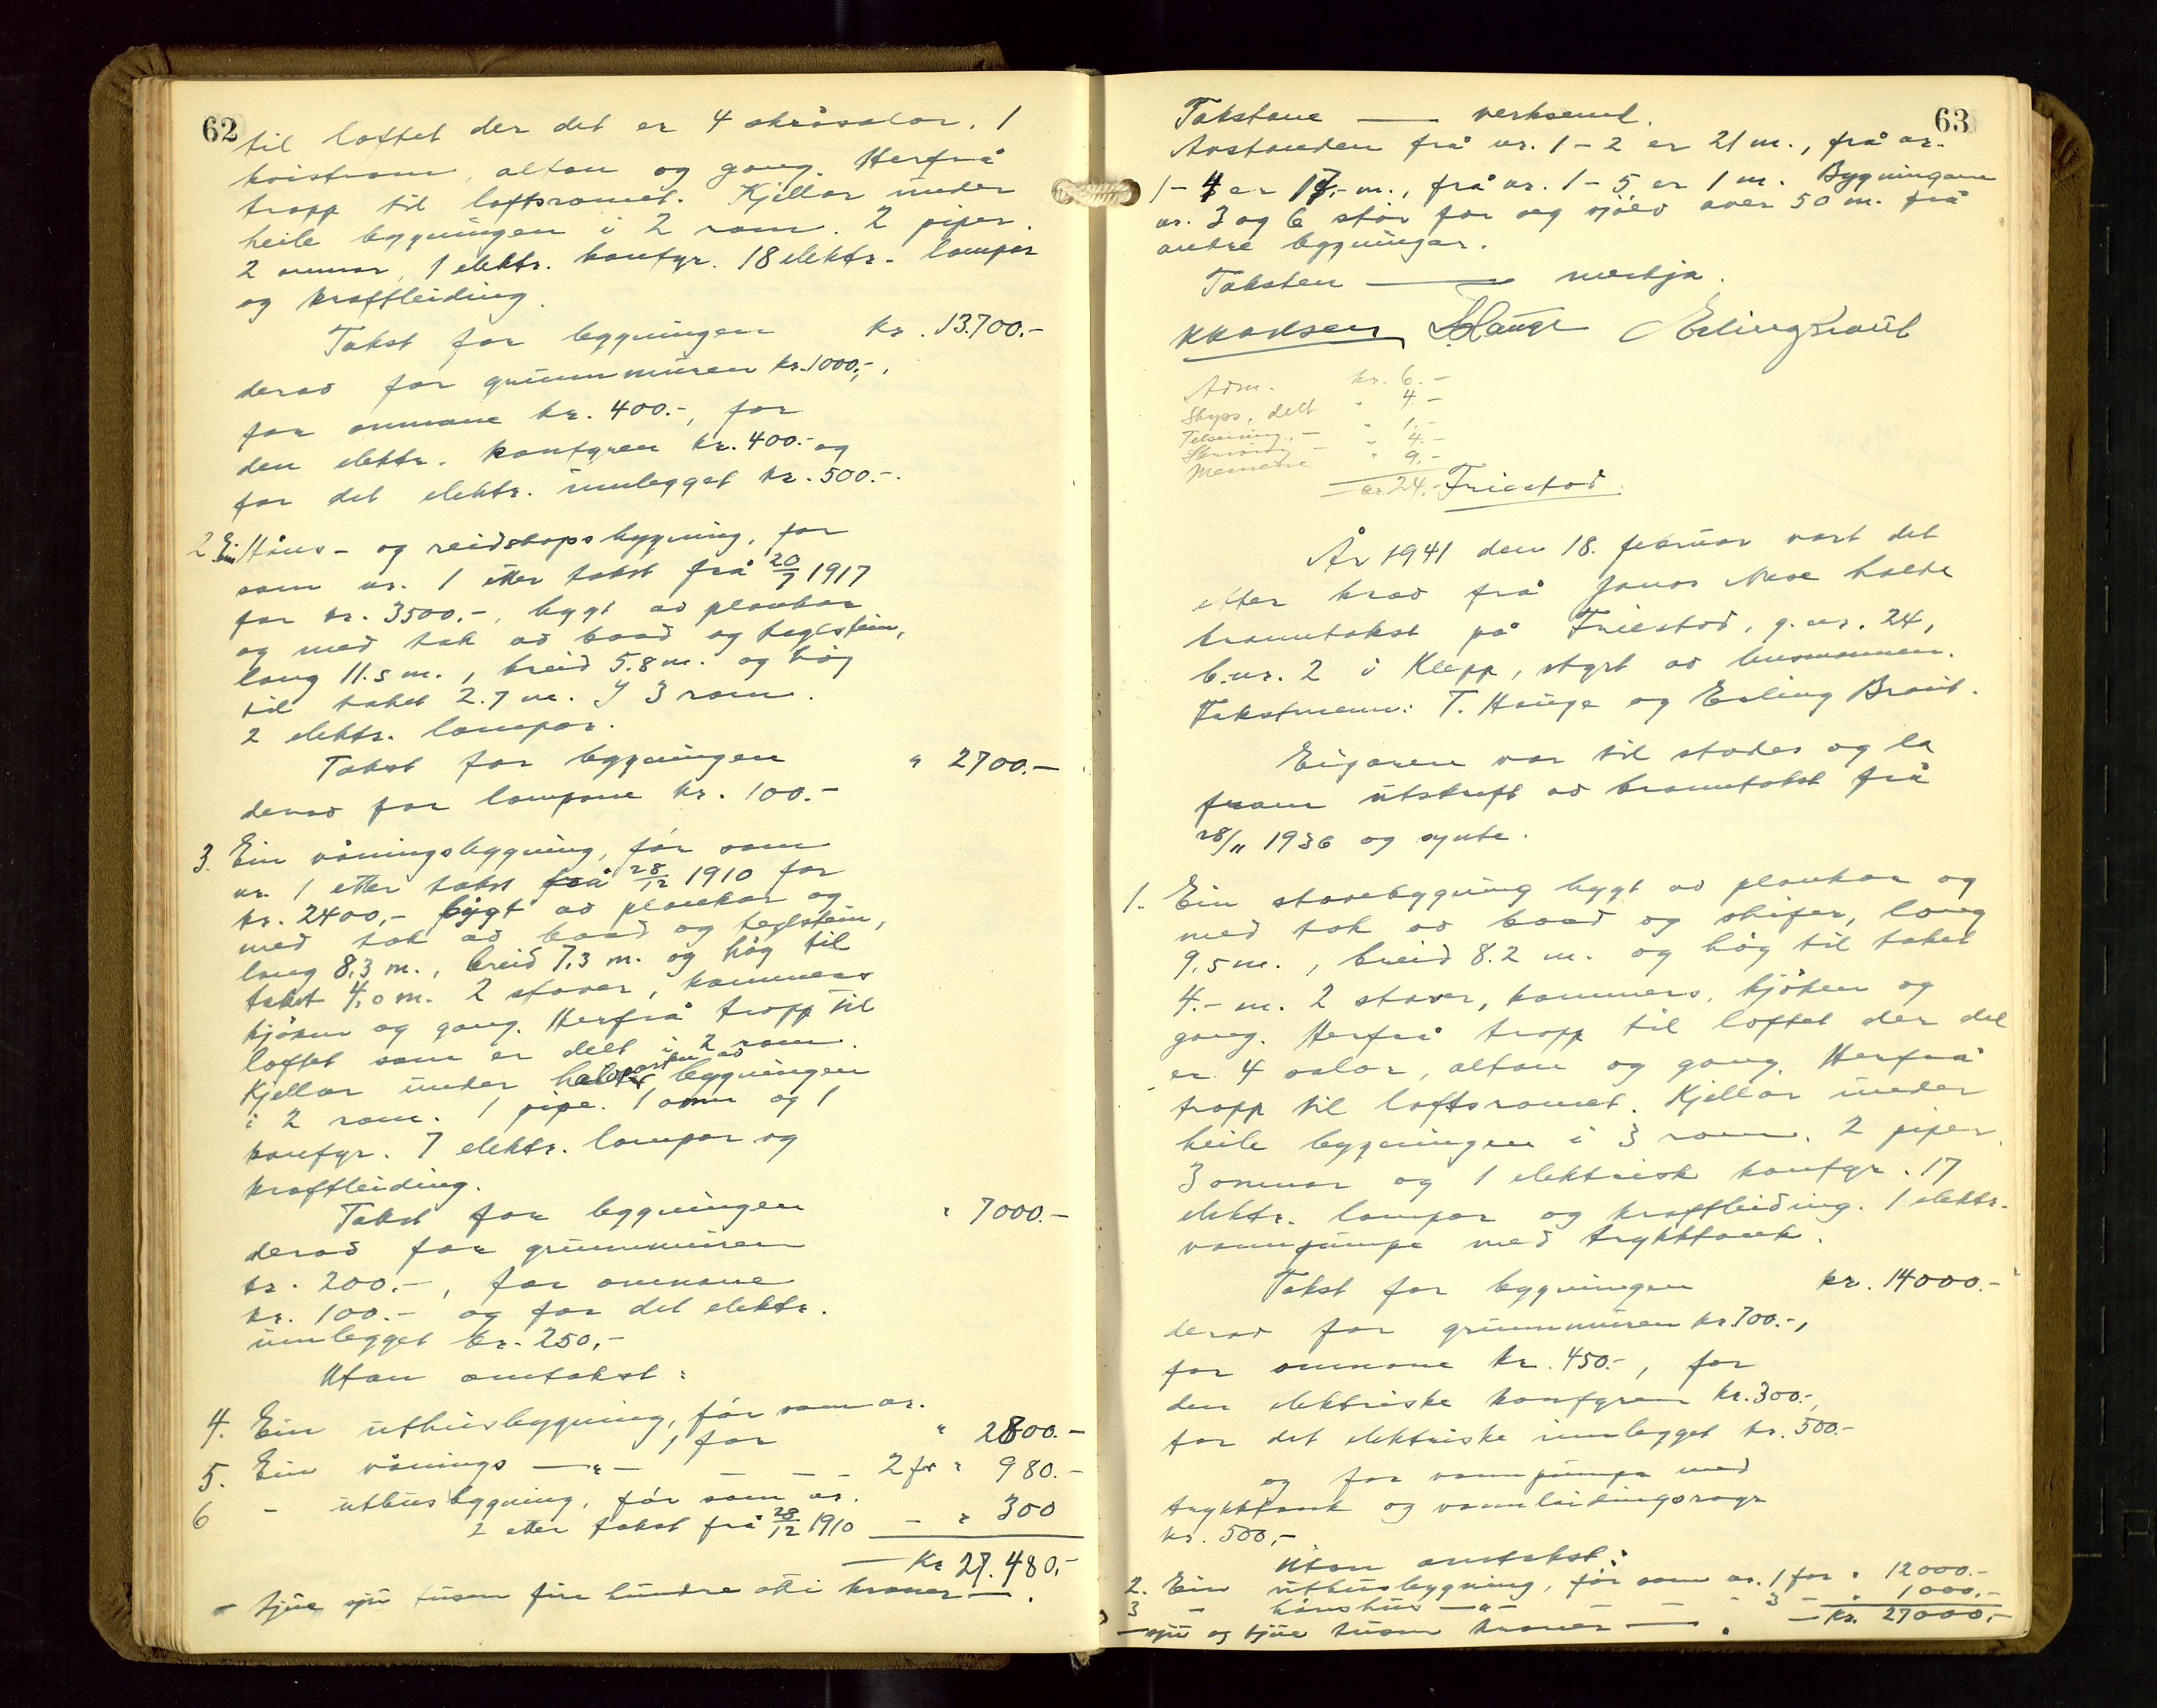 62
til loftet der det er 4 skråsalar, 1
kvistrom, altan og gang. Herfrå
trapp til loftsromet. Kjellar under
heile bygningen i 2 rom. 2 piper.
2 omnar, 1 elektr. komfyr. 18 elektr. lampor
og kraftleiding.
Takst for bygningen kr. 13.700.-
derav for grunnmuren kr. 1000,-,
for omnane kr. 400.-, for
den elektr. komfyren kr. 400.- og
for det elektr. innlegget kr. 500.-.
2. Ein Høns- og reidskapsbygning, før
som nr. 1 etter takst frå 20/7 1917
for kr. 3500.-, bygt av plankar
og med tak av bord og teglstein,
lang 11.5 m., breid 5.8 m. og høg
til taket 2.7 m. I 3 rom.
2 elektr. lampor.
Takst for bygningen " 2700.-
derav for lampone kr. 100.-
3. Ein våningsbygning, før som
nr. 1 etter takst frå 28/12 1910 for
kr. 2400,- bygt av plankar og
med tak av bord og teglstein,
lang 8,3 m., breid 7,3 m. og høg til
taket 4,0 m. 2 stover, kammers
kjøken og gang. Herfrå trapp til
loftet som er delt i 2 rom.
Kjellar under halvparten av bygningen
i 2 rom. 1 pipe. 1 omn og 1
komfyr. 7 elektr. lampor og
kraftleiding.
Takst for bygningen " 7000.-
derav for grunnmuren
kr. 200.-, for omnane
kr. 100.- og for det elektr.
innlegget kr. 250,-
Utan omtakst:
4. Ein uthusbygning, før som nr.
1, for " 2800.-
5. Ein vånings —"— - - - 2 for " 980.-
6 - uthusbygning, før som nr.
2 etter takst frå 28/12 1910 - " 300
— Kr 27.480,-
— tjue sju tusen fire hundre otti kroner —.
63
Takstane — verksemd.
Avstanden frå nr. 1 - 2 er 21 m., frå nr.
1 - 4 er 17,- m., frå nr. 1 - 5 er 1 m. Bygningane
nr. 3 og 6 står for seg sjølv over 50 m. frå
andre bygningar.
Taksten — nærtja.
T Hauge Erling Braut
Adm. kr. 6.-
Skyss, delt " 4.-
Telseining, - " 1.-
Skriving - " 4.-
Mennene " 9.-
kr. 24.- Friestad.
År 1941 den 18. februar vart det
etter krav frå Jonas Nese halde
branntakst på Friestad, g.nr. 24,
b.nr. 2 i Klepp, styrt av lensmannen.
Takstmenn: T. Hauge og Erling Braut.
Eigaren var til stades og la
fram utskrift av branntakst frå
28/11 1936 og synte.
1. Ein stovebygning bygt av plankar og
med tak av bord og skifer, lang
9,5 m., breid 8.2 m. og høg til taket
4.- m. 2 stover, kammers, kjøken og
gang. Herfrå trapp til loftet der det
er 4 salar, altan og gang. Herfrå
trapp til loftsromet. Kjellar under
heile bygningen i 3 rom. 2 piper.
3 omnar og 1 elektrisk komfyr. 17
elektr. lampor og kraftleiding. 1 elektr.
vannpumpe med trykktank.
Takst for bygningen kr. 14000.-
derav for grunnmuren kr. 700.-,
for omnane kr. 450.-, for
den elektriske komfyren kr. 300.-,
for det elektriske innlegget kr. 500.-
og for vannpumpa med
trykktank og vannleidingsrøyr
kr. 500,-
Utan omtakst:
2. Ein uthusbygning, før som nr. 1 for " 12000.-
3 - hønshus —"— - - - 3 - " 1000.-
— Kr. 27000,-
— sju og tjue tusen kroner —.